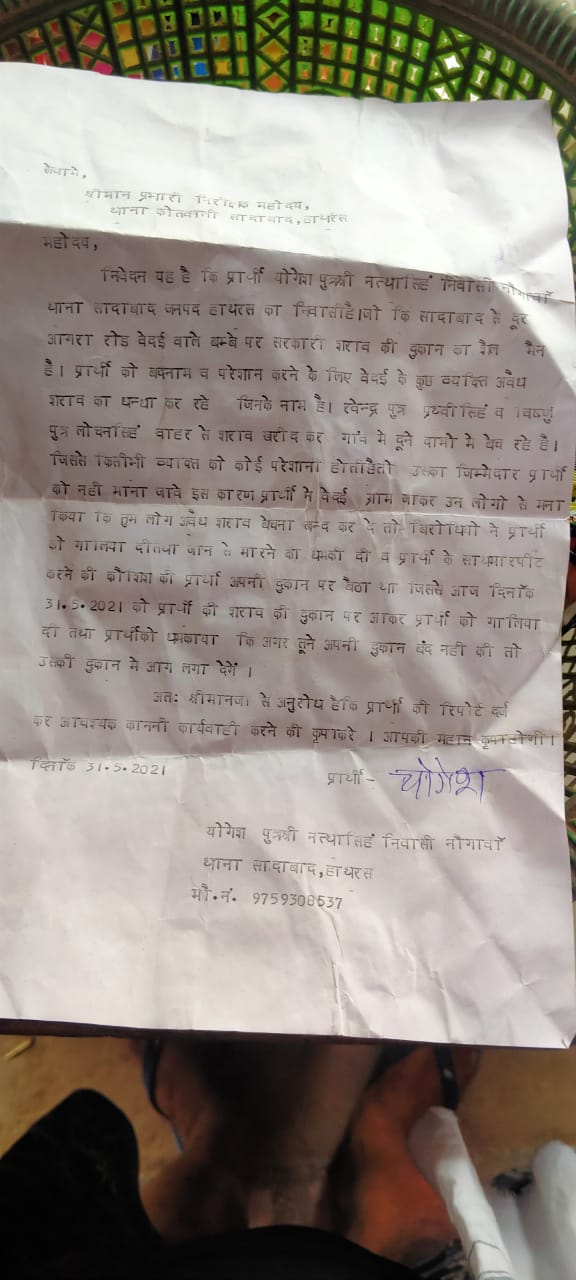 सेवामे,
श्रीमान प्रभारी निरीक्षक महोदय,
थाना कोतवाली सादाबाद,हाथरस
महोदय,
निवेदन यह है कि प्रार्थी योगेश पुत्रश्री नत्थासिहं निवासी नौगावॉ
थाना सादाबाद जनपद हाथरस का निवासीहै।जो कि सादाबाद से दूर
आगरा रोड वेदई वाले बम्बे पर सरकारी शराव की दुकान का शैल मैन
है। प्रार्थी को बदनाम व परेशान करने के लिए वेदई के कुछ व्यक्ति अवैध
शराव का धन्धा कर रहे जिनके नाम है। रवेन्द्र पुत्र प्रथ्वीसिहं व विष्णु
पुत्र लोचनसिहं वाहर से शराव खरीद कर गांव मे दूने दामो मे बेच रहे है।
जिससे किसीभी व्यक्ति को कोई परेशानी होतीहैतो उसका जिम्मेदार प्रार्थी
को नही माना जावे इस कारण प्रार्थी ने वेदई ग्राम जाकर उन लोगो से मना
किया कि तुम लोग अवैध शराव बेचना बन्द कर दे तो बिरोधियो ने प्रार्थी
को गालिया दीतथा जान से मारने की धमकी दी व प्रार्थी के साथमारपीट
करने की कौशिश की प्रार्थी अपनी दुकान पर बैठा था जिससे आज दिनॉक
31.5.2021 को प्रार्थी की शराव की दुकान पर आकर प्रार्थी को गालिया
दी तथा प्रार्थीको धमकाया कि अगर तूने अपनी दुकान बंद नही की तो
उसकी दुकान मे आग लगा देगें ।
अतः श्रीमानजी से अनुरोध हैकि प्रार्थी की रिपोर्ट दर्ज
कर आवश्यक काननी कार्यवाही करने की कृपाकरे । आपकी महान कृपाहोगी।
दिनॉक 31.5.2021 प्रार्थी- योगेश
योगेश पुत्रश्री नत्थासिहं निवासी नौगावॉ
थाना सादाबाद,हाथरस
मौ.नं. 9759308537